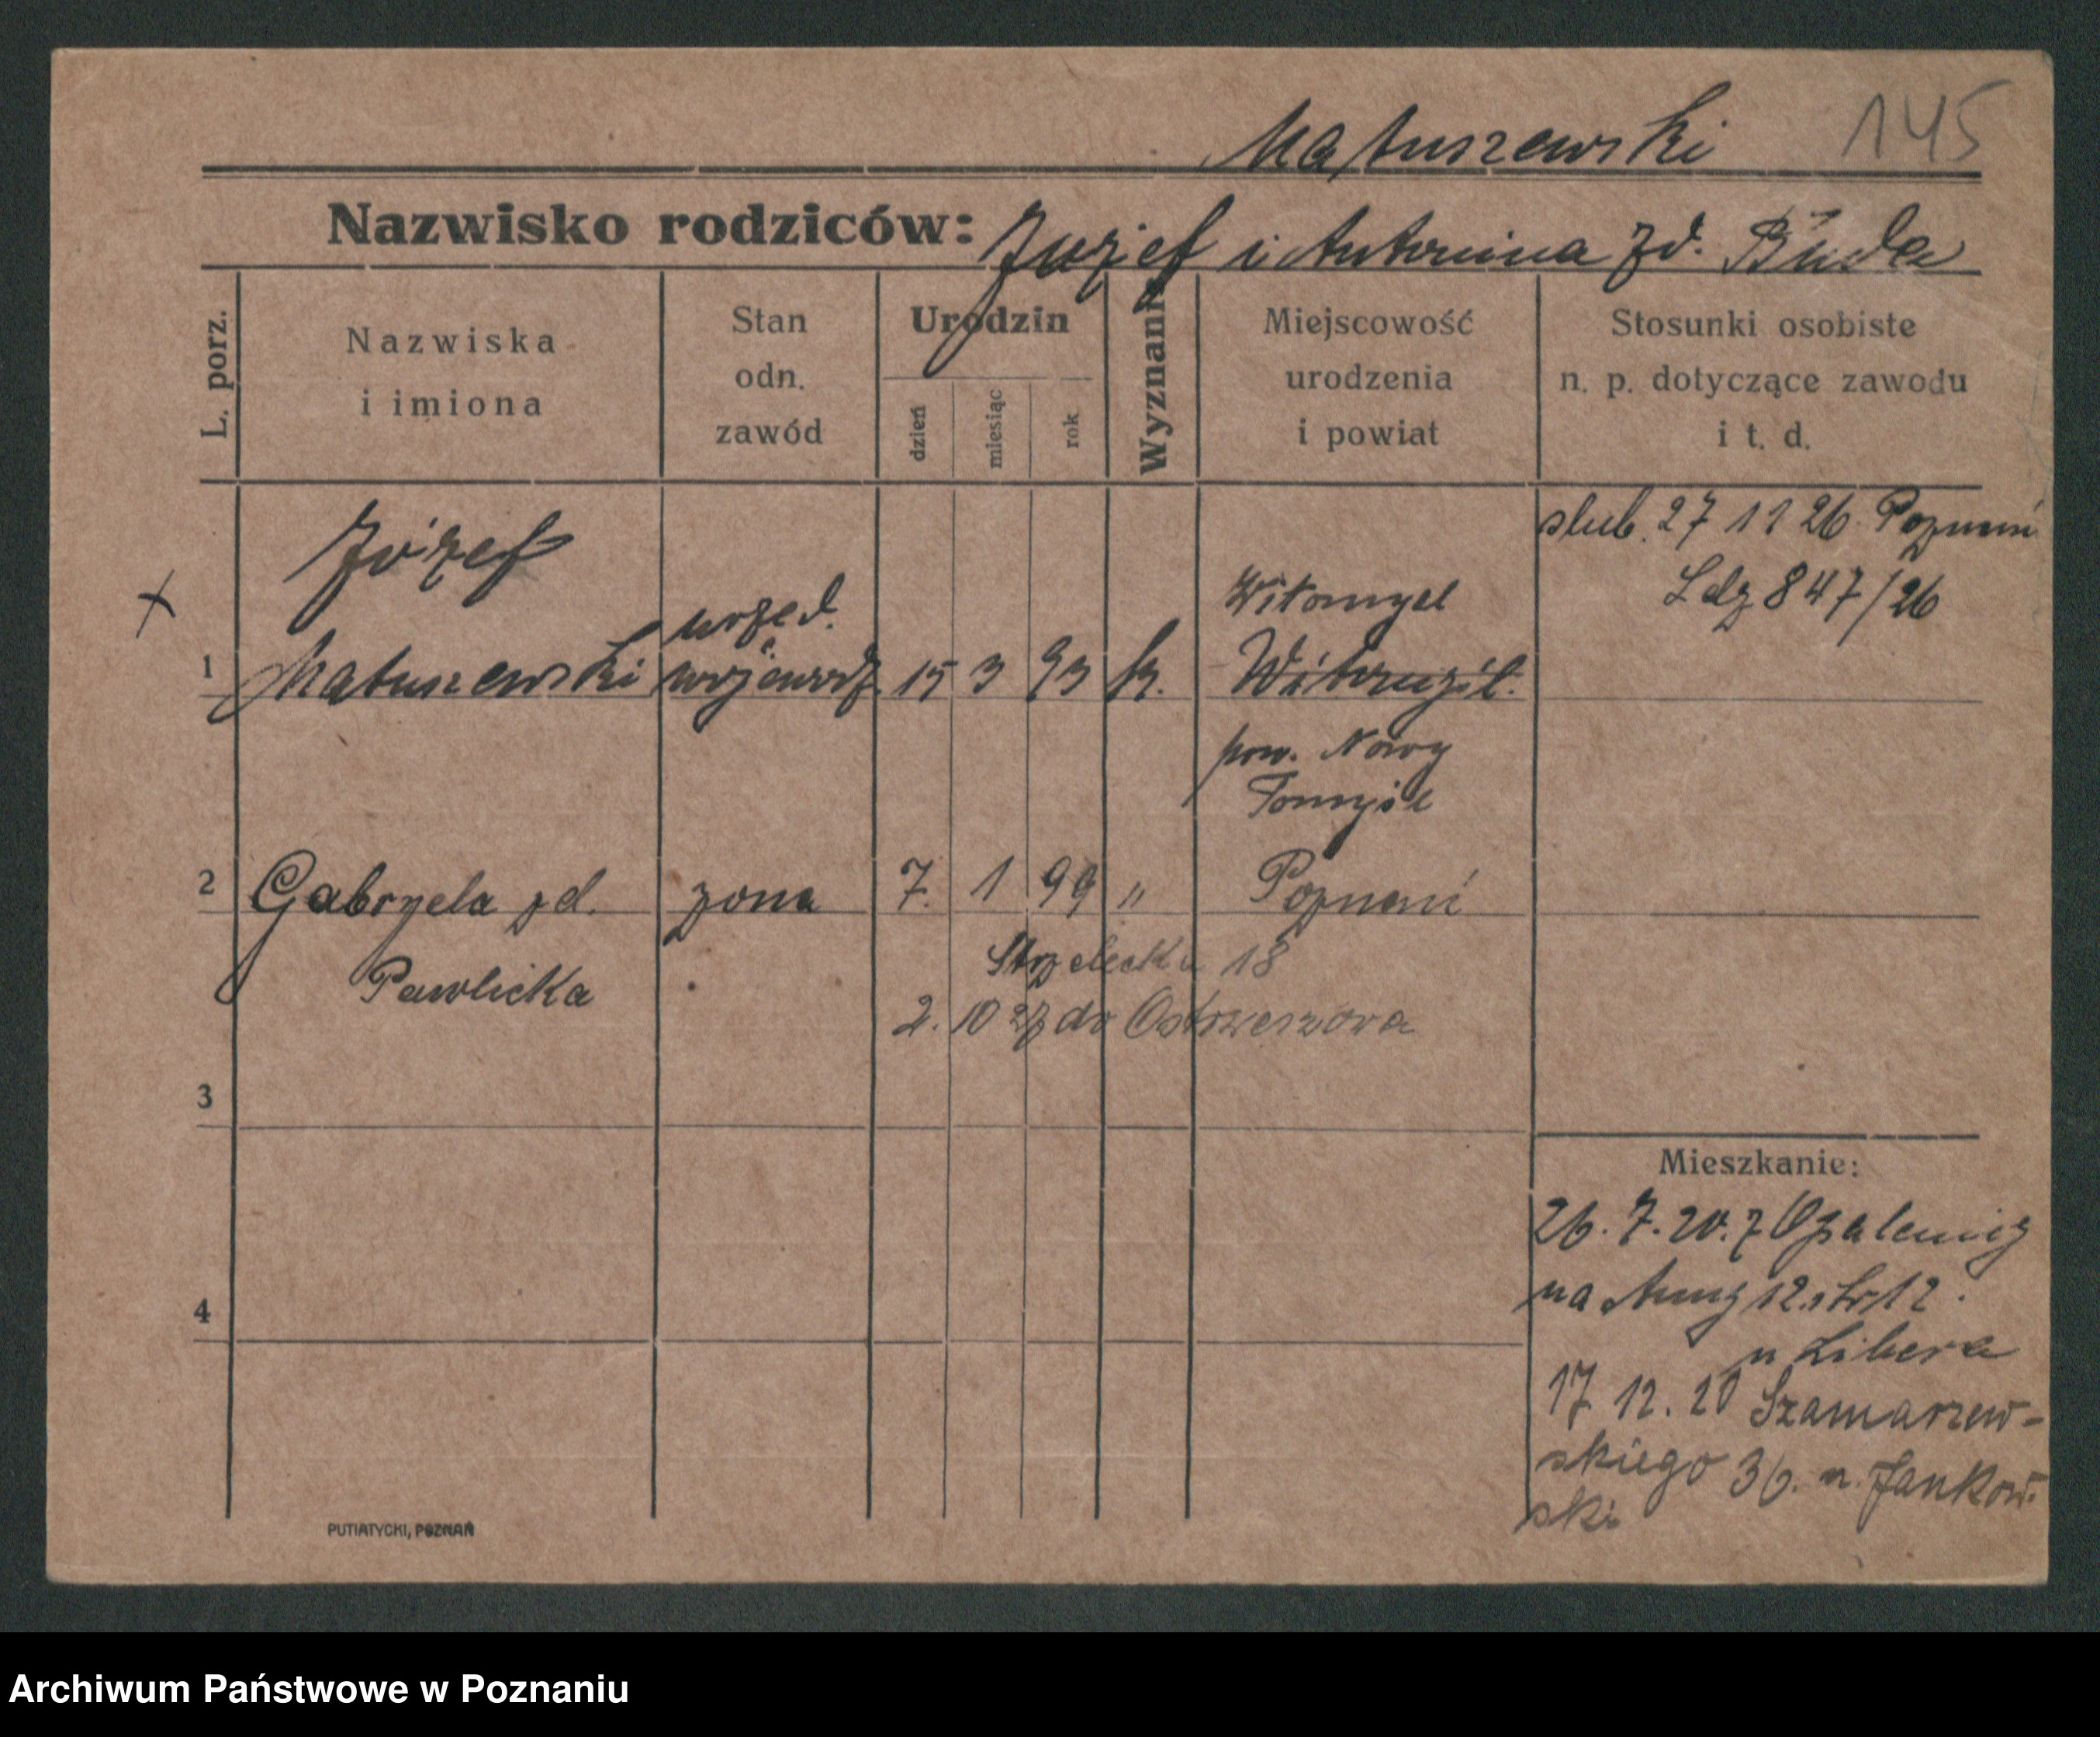 Matuszewski 145
Nazwisko rodziców: Józef i Antonina zd. Buda
L. porz.
Nazwiska
i imiona
Stan
odn.
zawód
Urodzin
dzień
miesiąc
rok
Wyznanie
Miejscowość
urodzenia
i powiat
Stosunki osobiste
n. p. dotyczące zawodu
i t. d.
ślub. 27 11 26 Poznań
Ldz 847/26
x
Józef
1 Matuszewski
urzęd.
wojewodz.
15 3 93 k.
Witomyśl
pow. Nowy
Tomyśl
2 Gabryela zd.
Pawlicka
żona
7. 1 99 "
Poznań
Strzelecka 18
2. 10 27 do Ostrzeszowa
3
4
Mieszkanie:
26. 7. 20. z Opalenicy
na 12.
u Libera
17 12. 20 Szamarzew-
skiego 36. u. Jankow-
ski
PUTIATYCKI, POZNAŃ
Archiwum Państwowe w Poznaniu